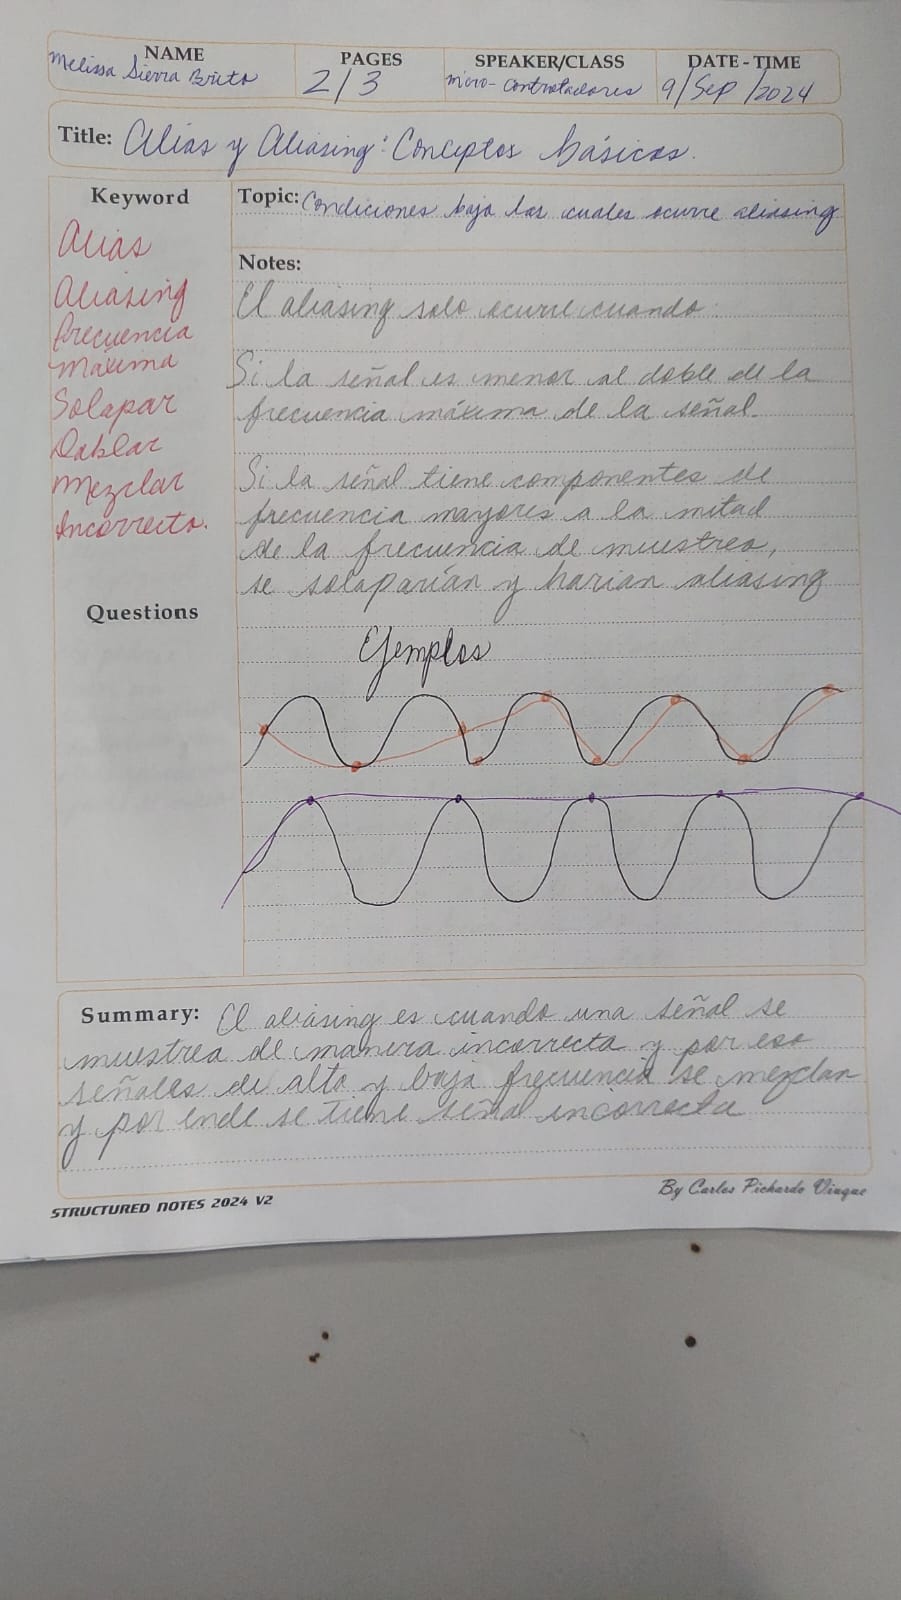 NAME PAGES SPEAKER/CLASS DATE-TIME
Melissa Sierra Brito 2/3 Micro-controladores 9/Sep/2024
Title: Alias y Aliasing: Conceptos básicos.
Keyword
Alias
Aliasing
frecuencia
Máxima
Solapar
Doblar
Mezclar
Incorrecto.
Questions
Topic: Condiciones bajo las cuales ocurre aliasing
Notes:
El aliasing solo ocurre cuando:
Si la señal es menor al doble de la
frecuencia máxima de la señal.
Si la señal tiene componentes de
frecuencia mayores a la mitad
de la frecuencia de muestreo,
se solaparían y harian aliasing
Ejemplos
Summary: El aliasing es cuando una señal se
muestrea de manera incorrecta y por eso
señales de alta y baja frecuencia se mezclan
y por ende se tiene señal incorrecta
By Carlos Pichardo Viuque
STRUCTURED NOTES 2024 V2